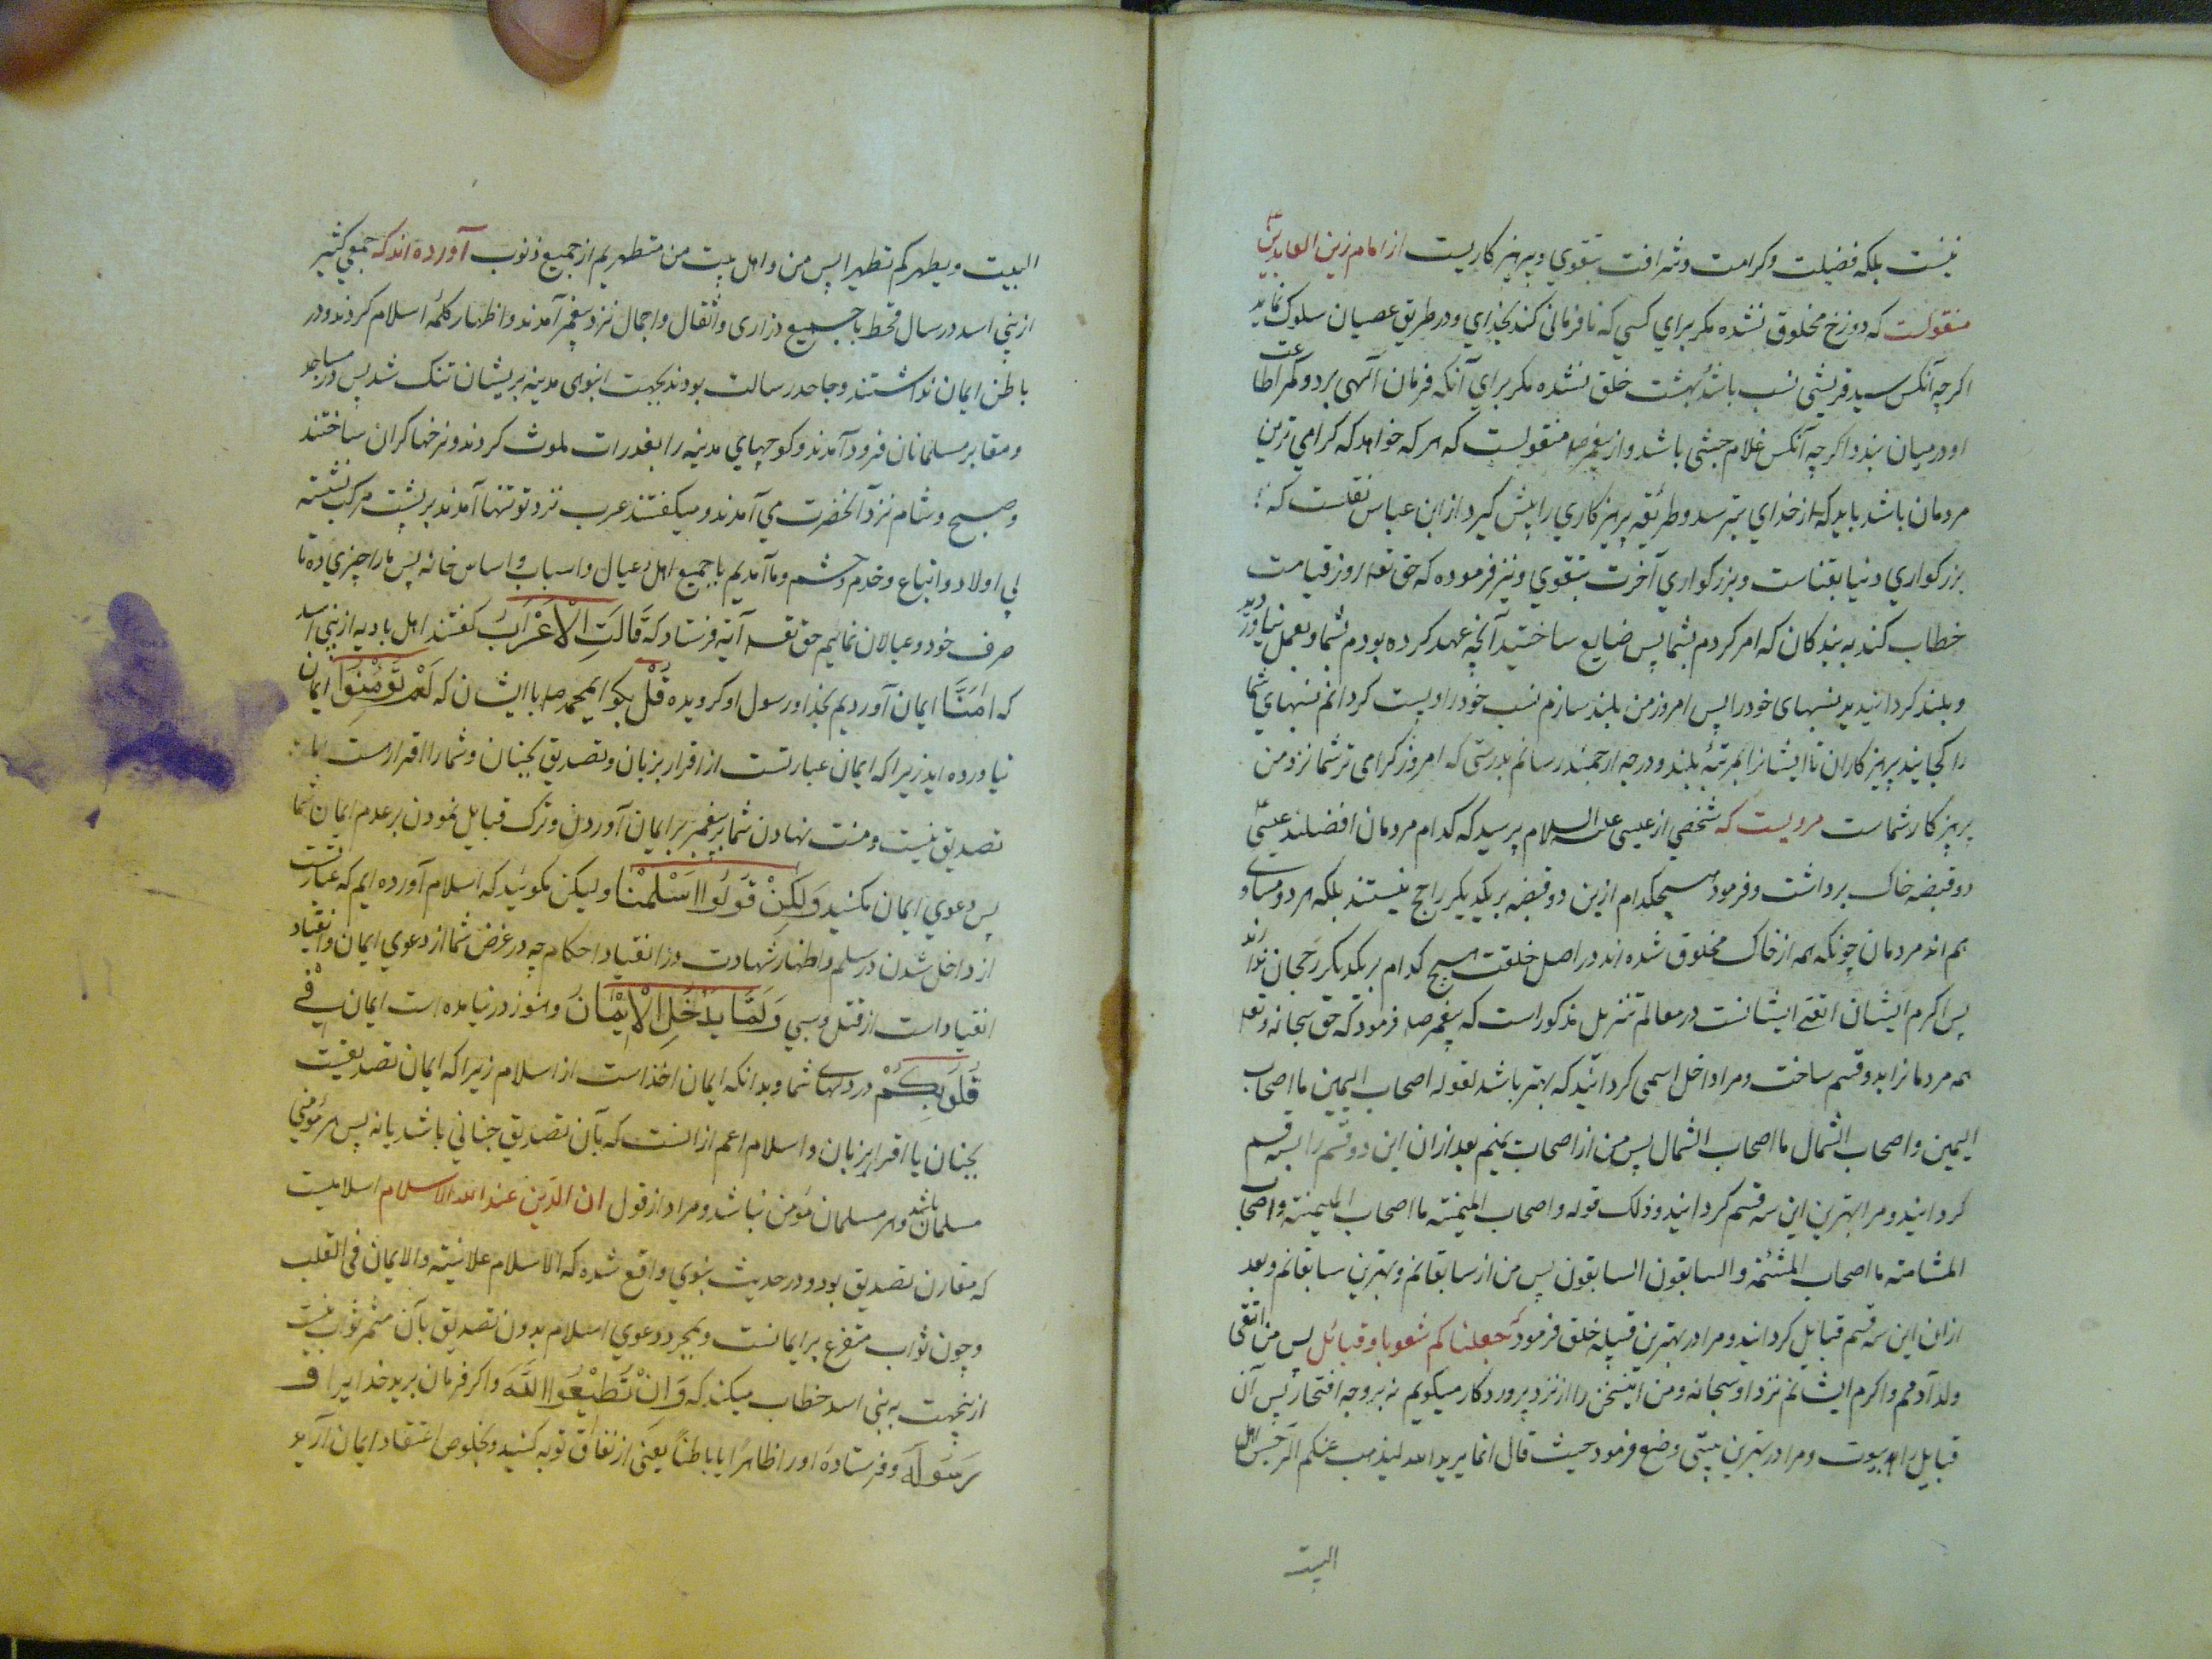 نیست بلکه فضیلت و کرامت و شرافت بتقوی و پرهیزکاریست از امام زین العابدین ع
منقولست که دوزخ مخلوق نشده مکر برای کسی که نافرمانی کند بخدای و در طریق عصیان سلوک نماید
اکرچه آنکس سید قریشی نسب باشد و بهشت خلق نشده مکر برای آنکه فرمان آلهی برد و کمر اطاعت
او در میان بندد اکرچه آنکس غلام حبشی باشد و از پیغمبر صلع منقولست که هر که خواهد که کرامی ترین
مردمان باشد باید که از خدای بترسد و طریقه پرهیزکاری را پیش کیرد از ابن عباس نقلست که
بزرکواری دنیا بغناست و بزرکواری آخرت بتقوی و نیز فرموده که حق تعه روز قیامت
خطاب کند به بندکان که امر کردم بشما پس ضایع ساختید آنچه عهد کرده بودم بشما و بعمل نیاوردید
و بلند کردانیدید نسبهای خود را پس امروز من بلند سازم نسب خود را و پست کردانم نسبهای شما
را کجایند پرهیزکاران تا ایشانرا بمرتبه بلند و درجه ارجمند رسانم بدرستی که امروز کرامی تر شما نزد من
پرهیزکار شماست مرویست که شخصی از عیسی علیه السلام پرسید که کدام مردمان افضلند عیسی ع
دو قبضه خاک برداشت و فرمود هیچکدام ازین دو قبضه بر یکدیکر راجح نیستند بلکه هر دو مساوی
هم اند مردمان چونکه همه از خاک مخلوق شده اند در اصل خلقت هیچ کدام بر یکدیکر رجحان ندارند
پس اکرم ایشان اتقی ایشانست در معالم تنزیل مذکور است که پیغمبر صلع فرمود که حق سبحانه و تعه
همه مردمانرا بدو قسم ساخت و مرا داخل اسمی کردانید که بهتر باشد لقوله اصحاب الیمین ما اصحاب
الیمین و اصحاب الشمال ما اصحاب الشمال پس من از اصحاب یمینم بعد ازان این دو قسم را بسه قسم
کردانید و مرا بهترین این سه قسم کردانید و ذلک قوله و اصحاب المیمنة ما اصحاب المیمنة و اصحاب
المشامة ما اصحاب المشئمة و السابقون السابقون پس من از سابقانم و بهترین سابقانم و بعد
ازان این سه قسم قبایل کردانید و مرا در بهترین قبیله خلق فرمود جعلناکم شعوبا و قبائل پس من اتقی
ولد آدمم و اکرم ایشانم نزد او سبحانه و من اینسخن را از نزد پروردکار میکویم نه بر وجه افتخار پس آن
قبایل را بیوت و مرا در بهترین بیتی وضع فرمود حیث قال انما یرید الله لیذهب عنکم الرجس اهل
البیت
البیت و یطهرکم تطهیرا پس من و اهل بیت من متطهریم از جمیع ذنوب آورده اند که جمعی کثیر
از بنی اسد در سال قحط با جمیع ذراری و اثقال و احمال نزد پیغمبر آمدند و اظهار کلمه اسلام کردند و در
باطن ایمان نداشتند و جاحد رسالت بودند بجهت انبوهی مدینه بریشان تنک شد پس در مساجد
و مقابر مسلمانان فرود آمدند و کوچهای مدینه را بقذرات ملوث کردند و نرخها کران ساختند
و صبح و شام نزد آنحضرت می آمدند و میکفتند عرب نزد تو تنها آمدند بر پشت مرکب نشسته
بی اولاد و اتباع و خدم و حشم و ما آمدیم با جمیع اهل و عیال و اسباب و اساس خانه پس ما را چیزی ده تا
صرف خود و عیالان نماییم حق تعه آیه فرستاد که قَالَتِ الْاَعْرَابُ کفتند اهل بادیه از بنی اسد
که امَنَّا ایمان آوردیم بخدا و رسول او کرویده قُلْ بکو ایمحمد صلع با ایشان که لَمْ تُؤْمِنُوا ایمان
نیاورده اید زیرا که ایمان عبارتست از اقرار بزبان و تصدیق بجنان و شما را اقرار هست اما
تصدیق نیست و منت نهادن شما بر پیغمبر بر ایمان آوردن و ترک قبایل نمودن بر عدم ایمان شما
پس دعوی ایمان مکنید وَلَکِنْ قُولُوا اَسْلَمْنَا ولیکن بکوئید که اسلام آورده ایم که عبارتست
از داخل شدن در سلم و اظهار شهادت و از انقیاد احکام چه در غرض شما از دعوی ایمان و انقیاد
انقیاد است از قتل و سبی وَلَمَّا یَدْخُلِ الْاِیْمَانُ و هنوز در نیامده است ایمان فِی
قُلُوبِکُمْ در دلهای شما و بدانکه ایمان اخذ است از اسلام زیرا که ایمان تصدیقست
بجنان یا اقرار بزبان و اسلام اعم از انست که بآن تصدیق جنانی باشد یا نه پس هر مؤمنی
مسلمان باشد و هر مسلمان مؤمن نباشد و مراد از قول ان الدین عند الله الاسلام اسلامیست
که مقارن تصدیق بود و در حدیث نبوی واقع شده که الاسلام علانیة و الایمان فی القلب
و چون ثواب متفرع بر ایمانست و بمجرد دعوی اسلام بدون تصدیق بآن مثمر ثواب نیست
ازینجهت به بنی اسد خطاب میکند که وَاِنْ تُطِیْعُوا اللّٰهَ و اکر فرمان برید خدایرا وَ
رَسُولَهُ و فرستاده او را ظاهرا یا باطنا یعنی از نفاق توبه کنید و بخلوص اعتقاد ایمان آرید